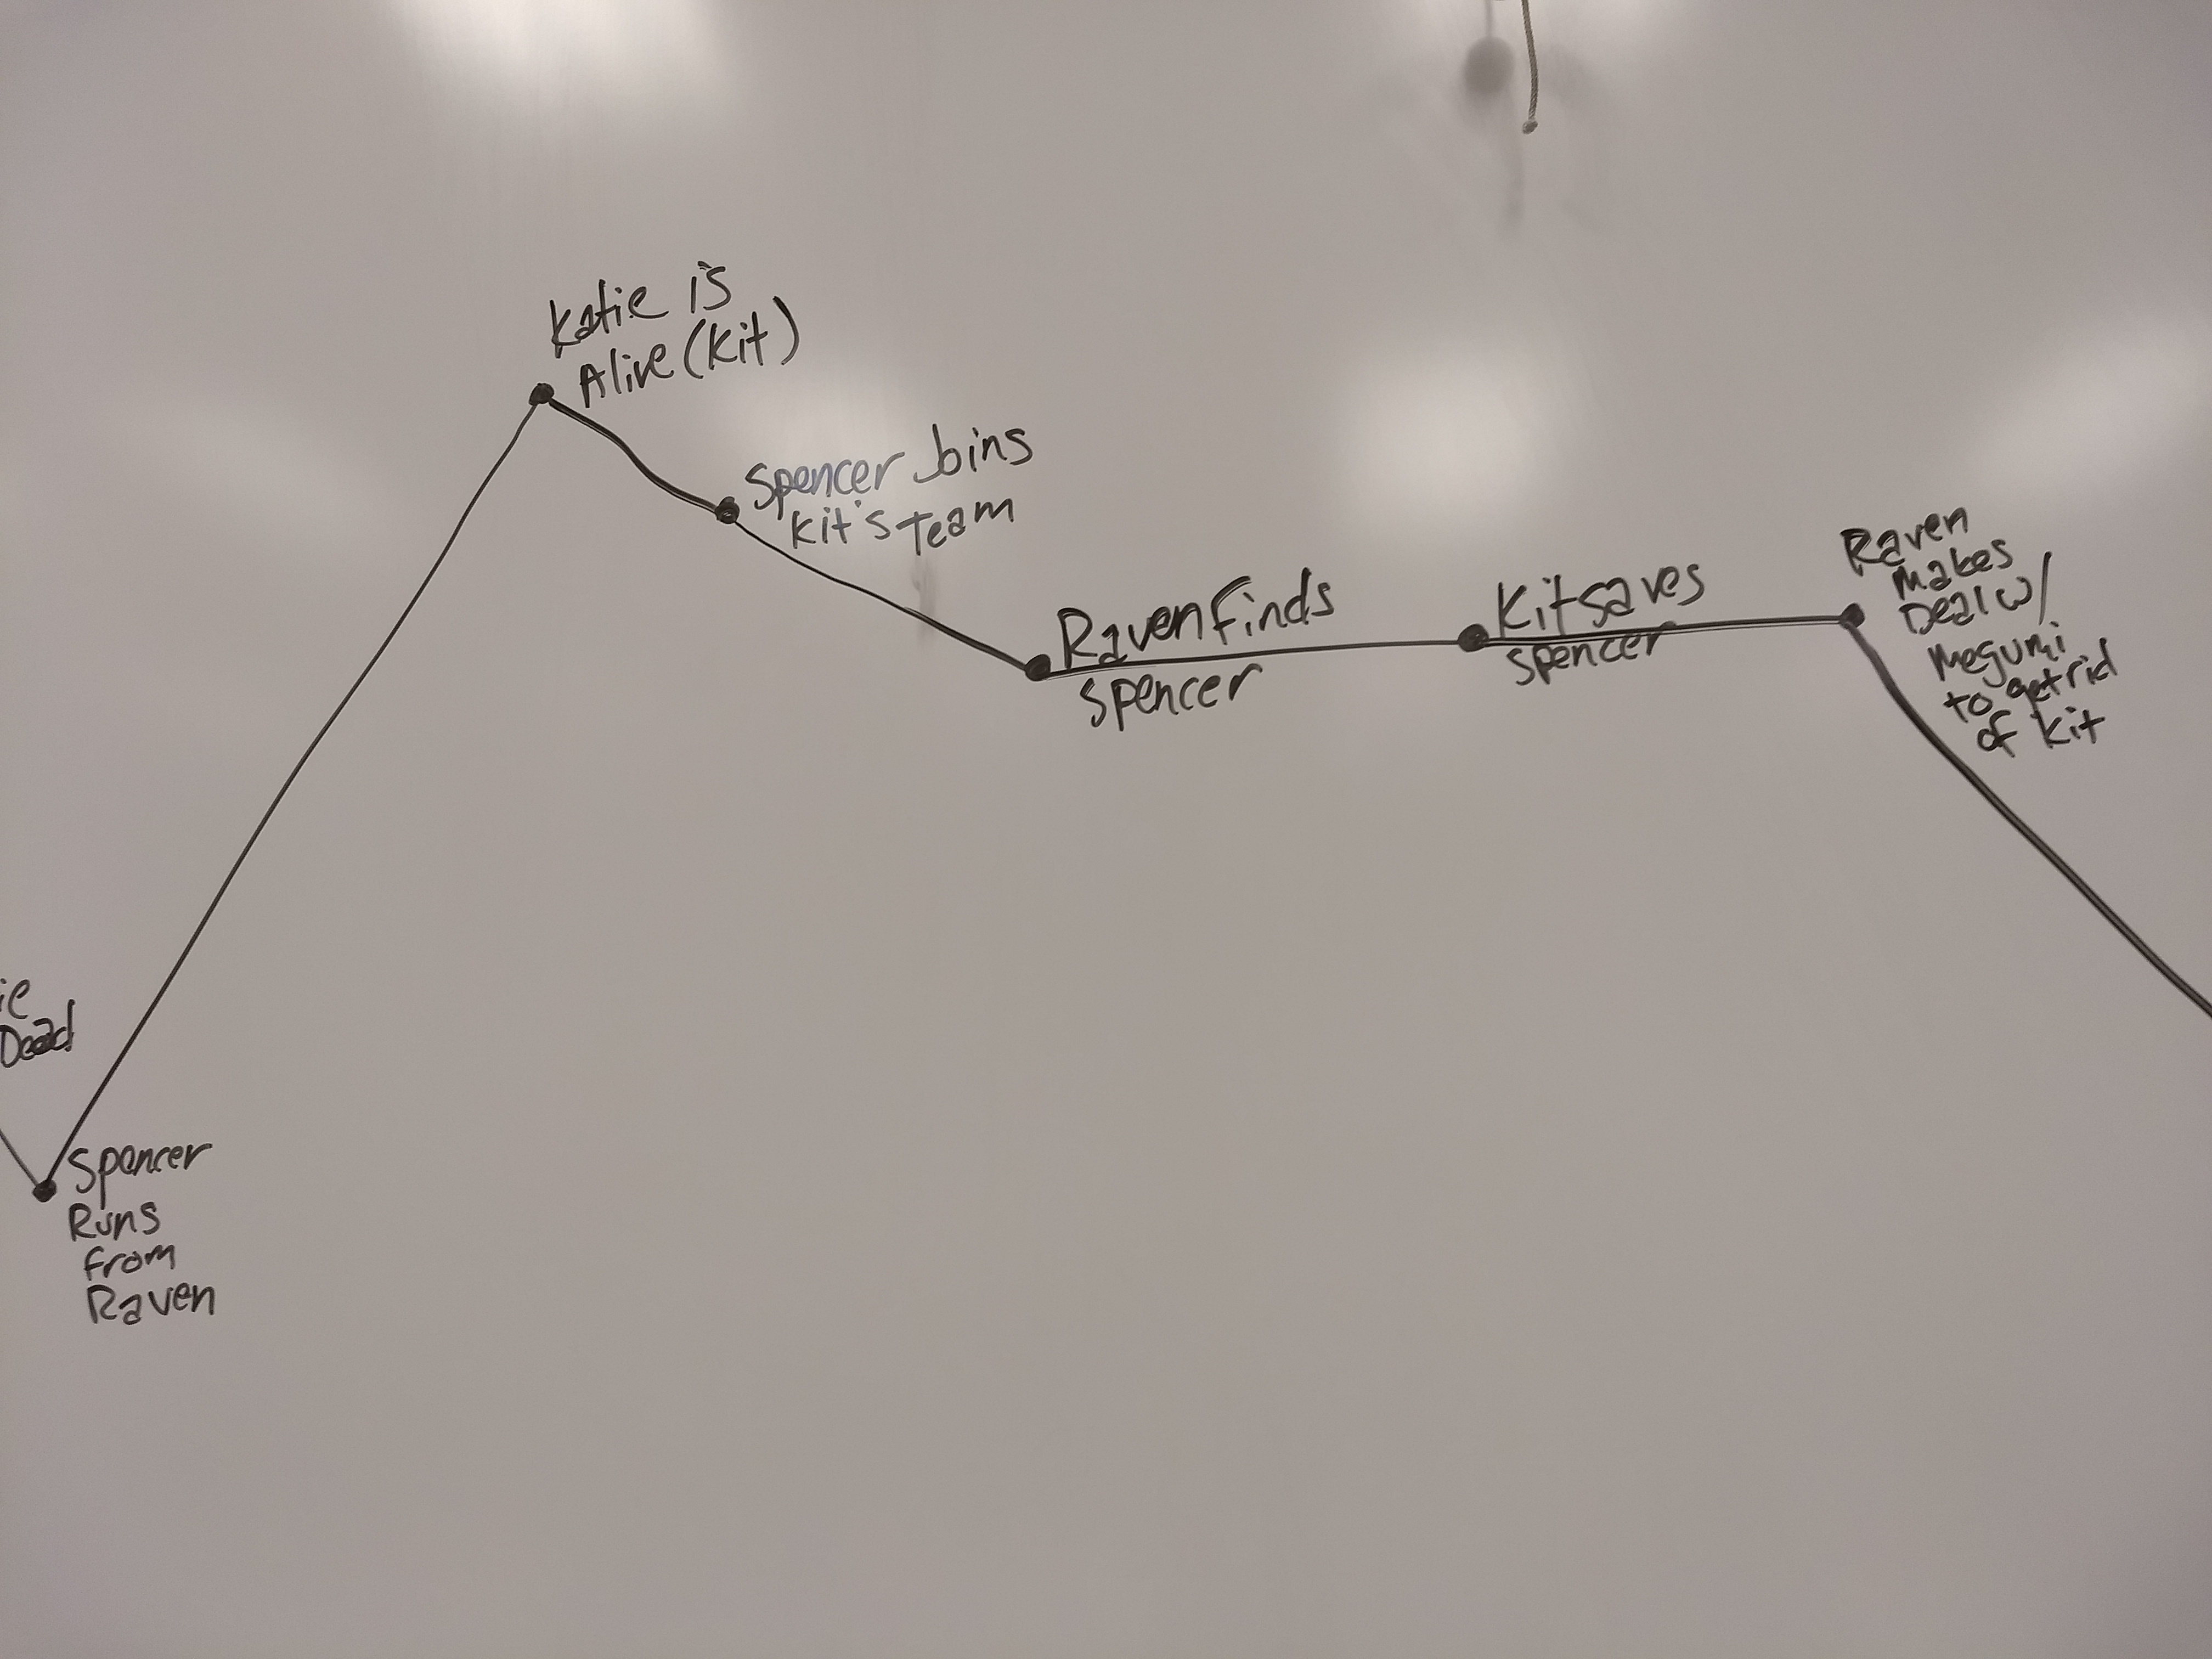 ie
Dead
Spencer
Runs
from
Raven
Katie is
Alive (Kit)
Spencer Joins
Kit's Team
Raven Finds
Spencer
Kit saves
Spencer
Raven
Makes
Deal w/
Megumi
to get rid
of Kit